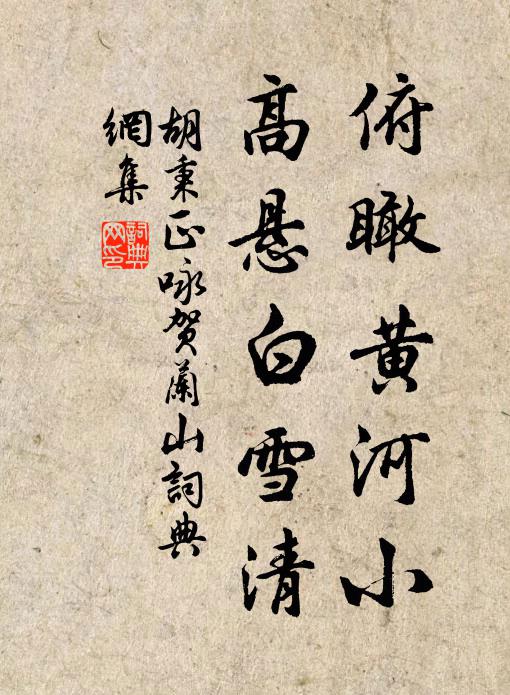 俯瞰黄河小
高悬白雪清
胡秉正咏贺蘭山詞典
網集
詞典
网印